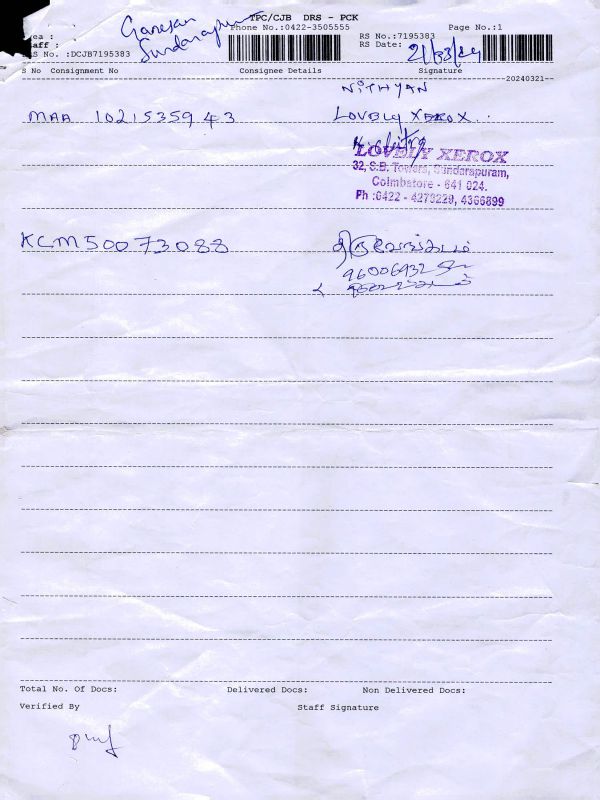 Ganesan
Sundarapuram
TPC/CJB DRS - PCK
Phone No.:0422-3505555
Page No.:1
RS No.:7195383
RS Date: 21/03/24
ea :
aff :
S No. :DCJB7195383
S No Consignment No Consignee Details Signature
20240321
NITHYAN
MAA 1021535943 LOVELY XEROX
LOVELY XEROX
32, S.B. Towers, Sundarapuram,
Coimbatore - 641 024.
Ph :0422 - 4273229, 4366899
KCM50073088
Total No. Of Docs: Delivered Docs: Non Delivered Docs:
Verified By Staff Signature